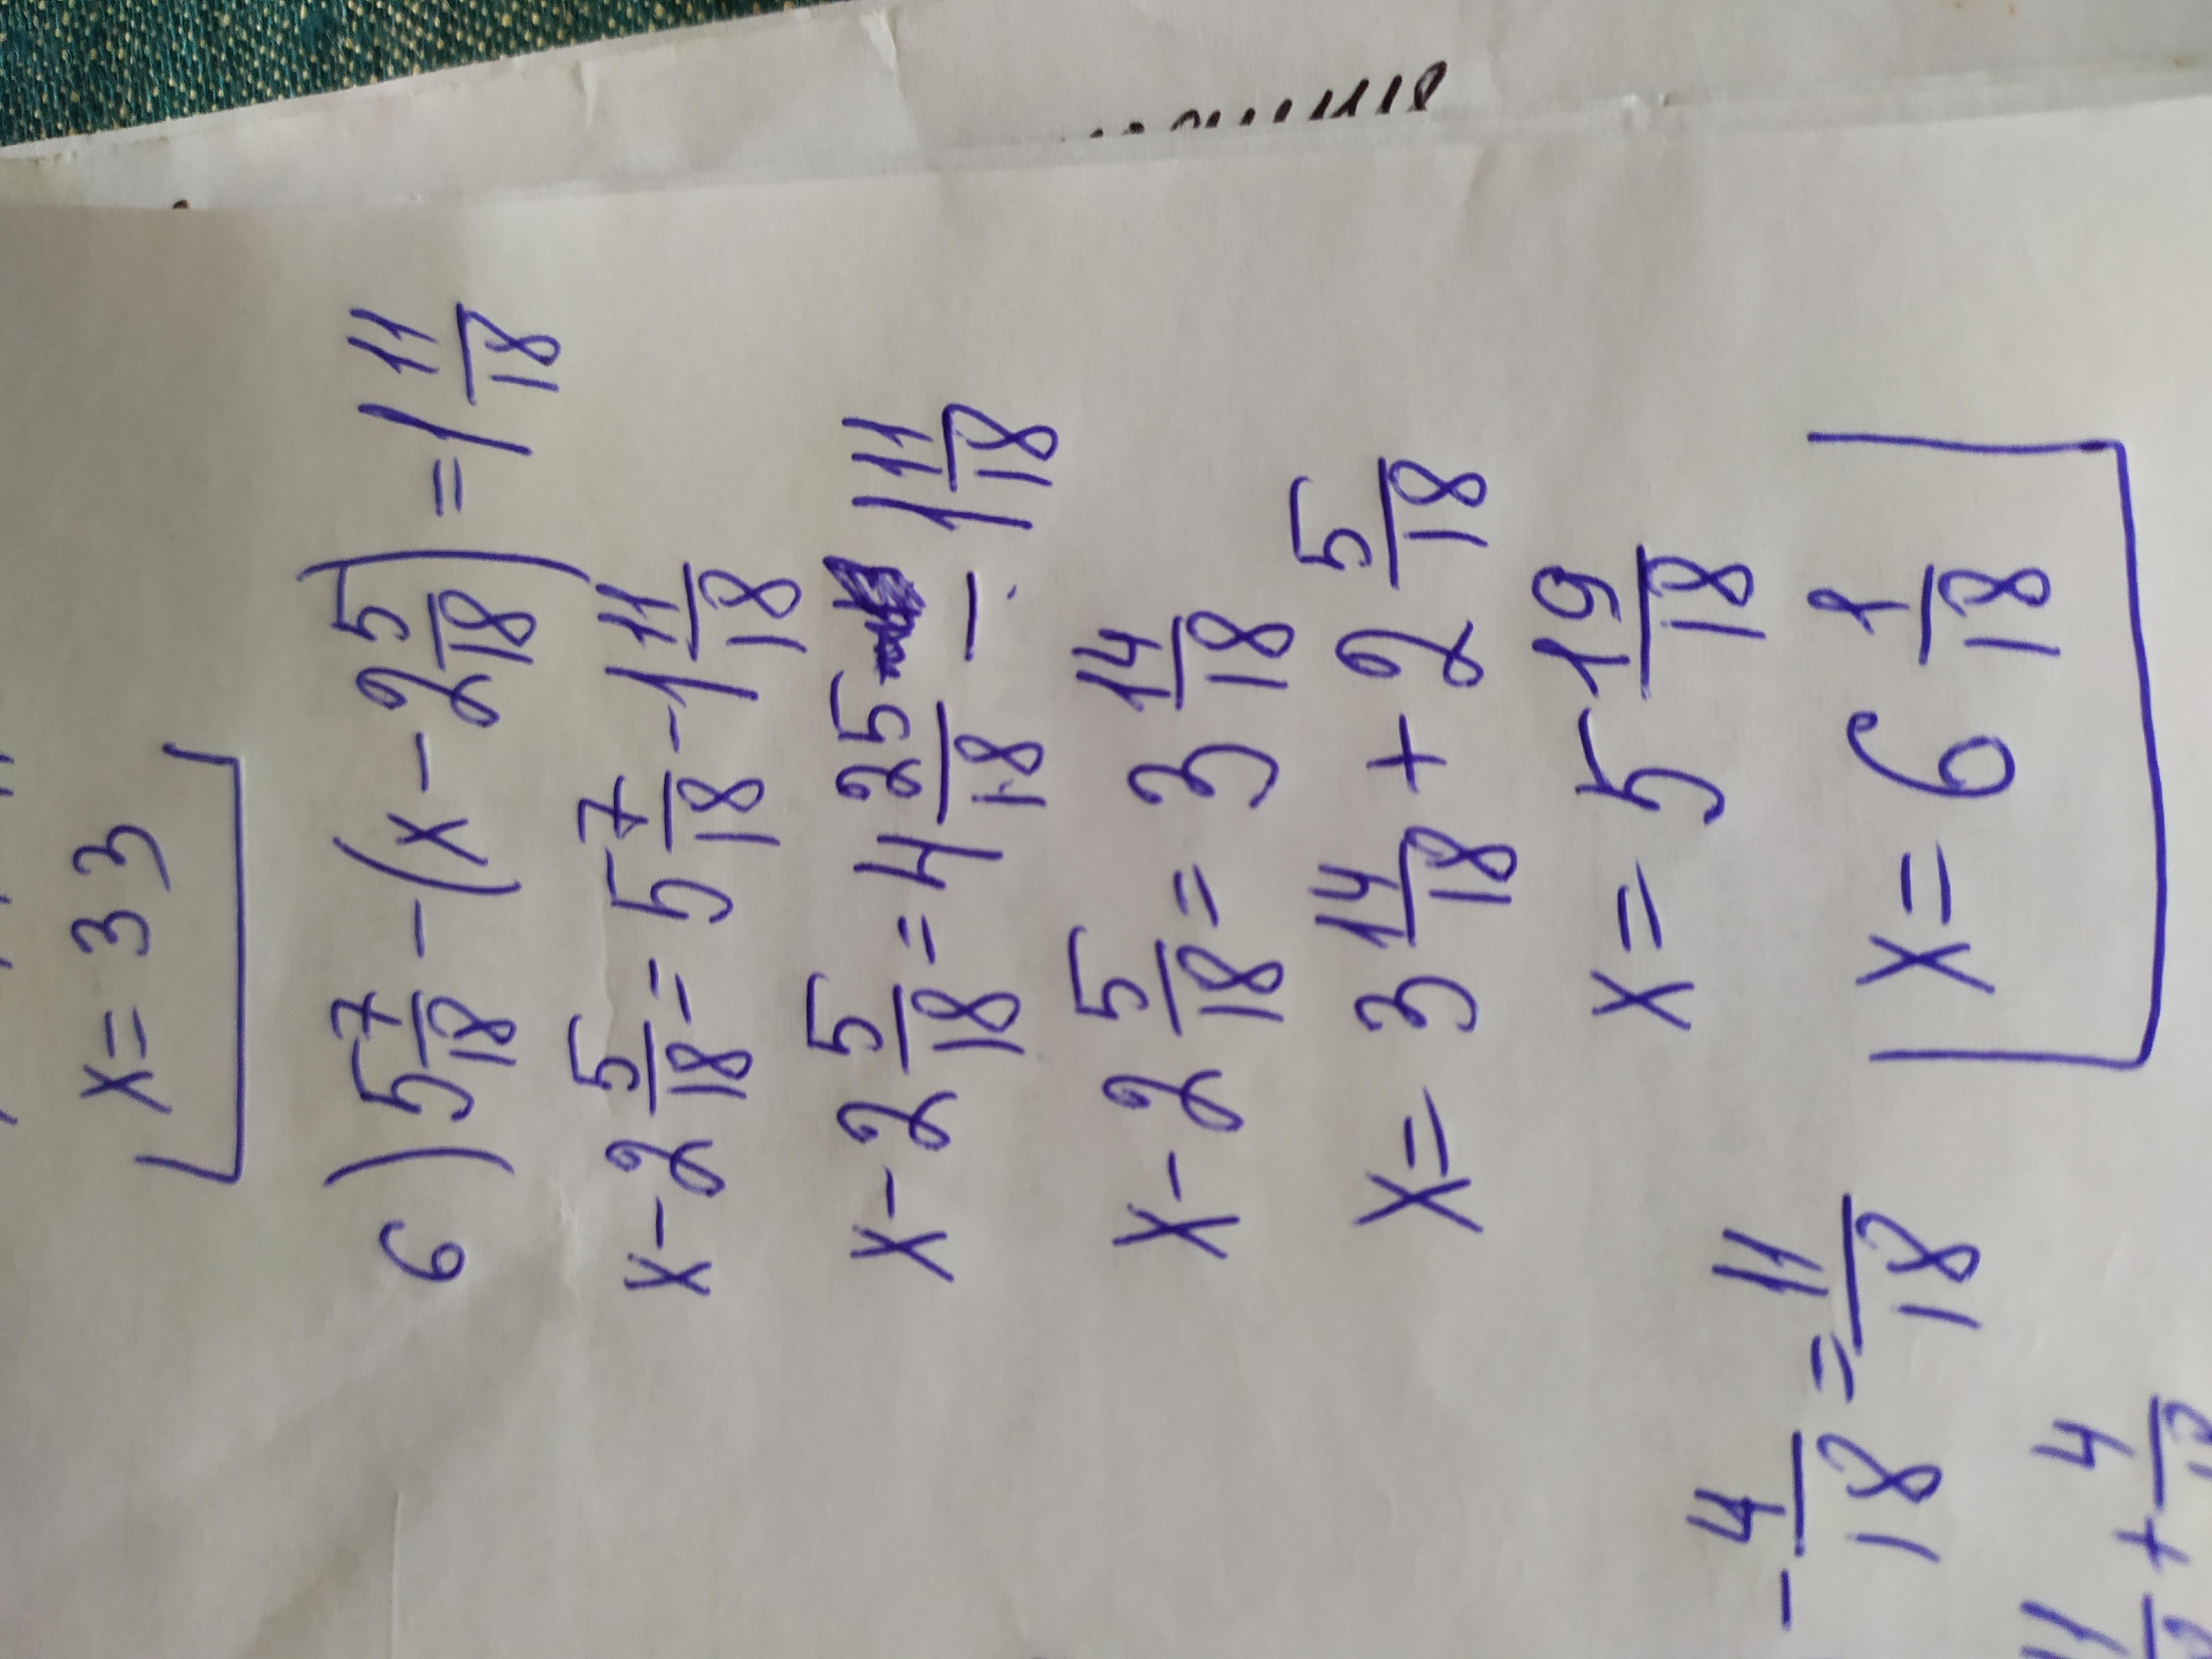 x = 33
6) 5 7/18 - (x - 2 5/18) = 1 11/18
x - 2 5/18 = 5 7/18 - 1 11/18
x - 2 5/18 = 4 25/18 - 1 11/18
x - 2 5/18 = 3 14/18
x = 3 14/18 + 2 5/18
x = 5 19/18
x = 6 1/18
- 4/18 = 11/18
+ 4